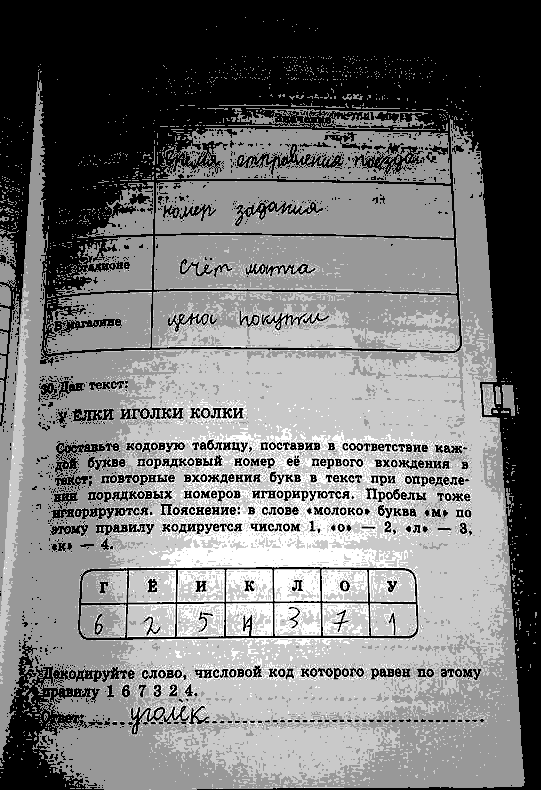 время отправления поезда
номер задания
стадионе
счёт матча
в магазине
цена покупки
30. Дан текст:
У ЁЛКИ ИГОЛКИ КОЛКИ
Составьте кодовую таблицу, поставив в соответствие каж-
дой букве порядковый номер её первого вхождения в
текст; повторные вхождения букв в текст при определе-
нии порядковых номеров игнорируются. Пробелы тоже
игнорируются. Пояснение: в слове «молоко» буква «м» по
этому правилу кодируется числом 1, «о» — 2, «л» — 3,
«к» — 4.
Г Ё И К Л О У
6 2 5 4 3 7 1
Декодируйте слово, числовой код которого равен по этому
правилу 1 6 7 3 2 4.
Ответ: уголёк